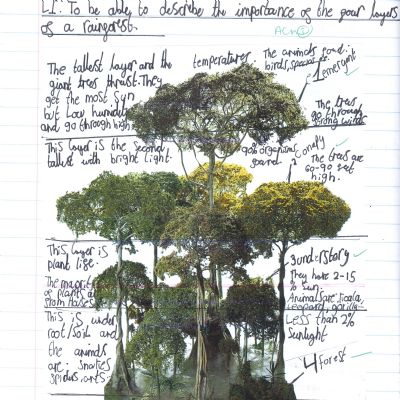 LI: To be able to describe the importance of the four layers
of a rainforest.
The tallest layer and the
giant trees thrust. They
get the most sun
but low humid
and go through high
temperatures
The animals
birds,
1 emergent
The trees
go through
strong winds
This layer is the second
tallest with bright light.
90% organisms
found
2 Canopy
The trees are
60-90 feet
high.
This layer is
plant life.
The majority
of plants
from houses
3 understory
They have 2-15
% sun.
Animals are
leopard, gorilla
This is under
root/soil and
the animals
are: snakes
spiders, ants
Less than 2%
sunlight
4 forest